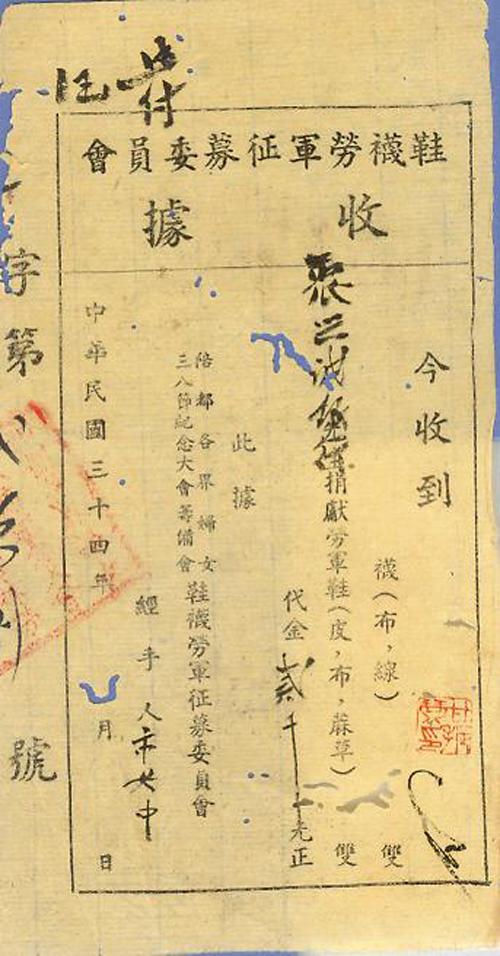 鞋襪勞軍征募委員會
收據
今收到
襪（布，線）　雙
捐獻勞軍鞋（皮，布，蔴草）　雙
代金貳千　元正
此據
陪都各界婦女
三八節紀念大會籌備會
鞋襪勞軍征募委員會
經手人市女中
中華民國三十四年　月　日
字第　號